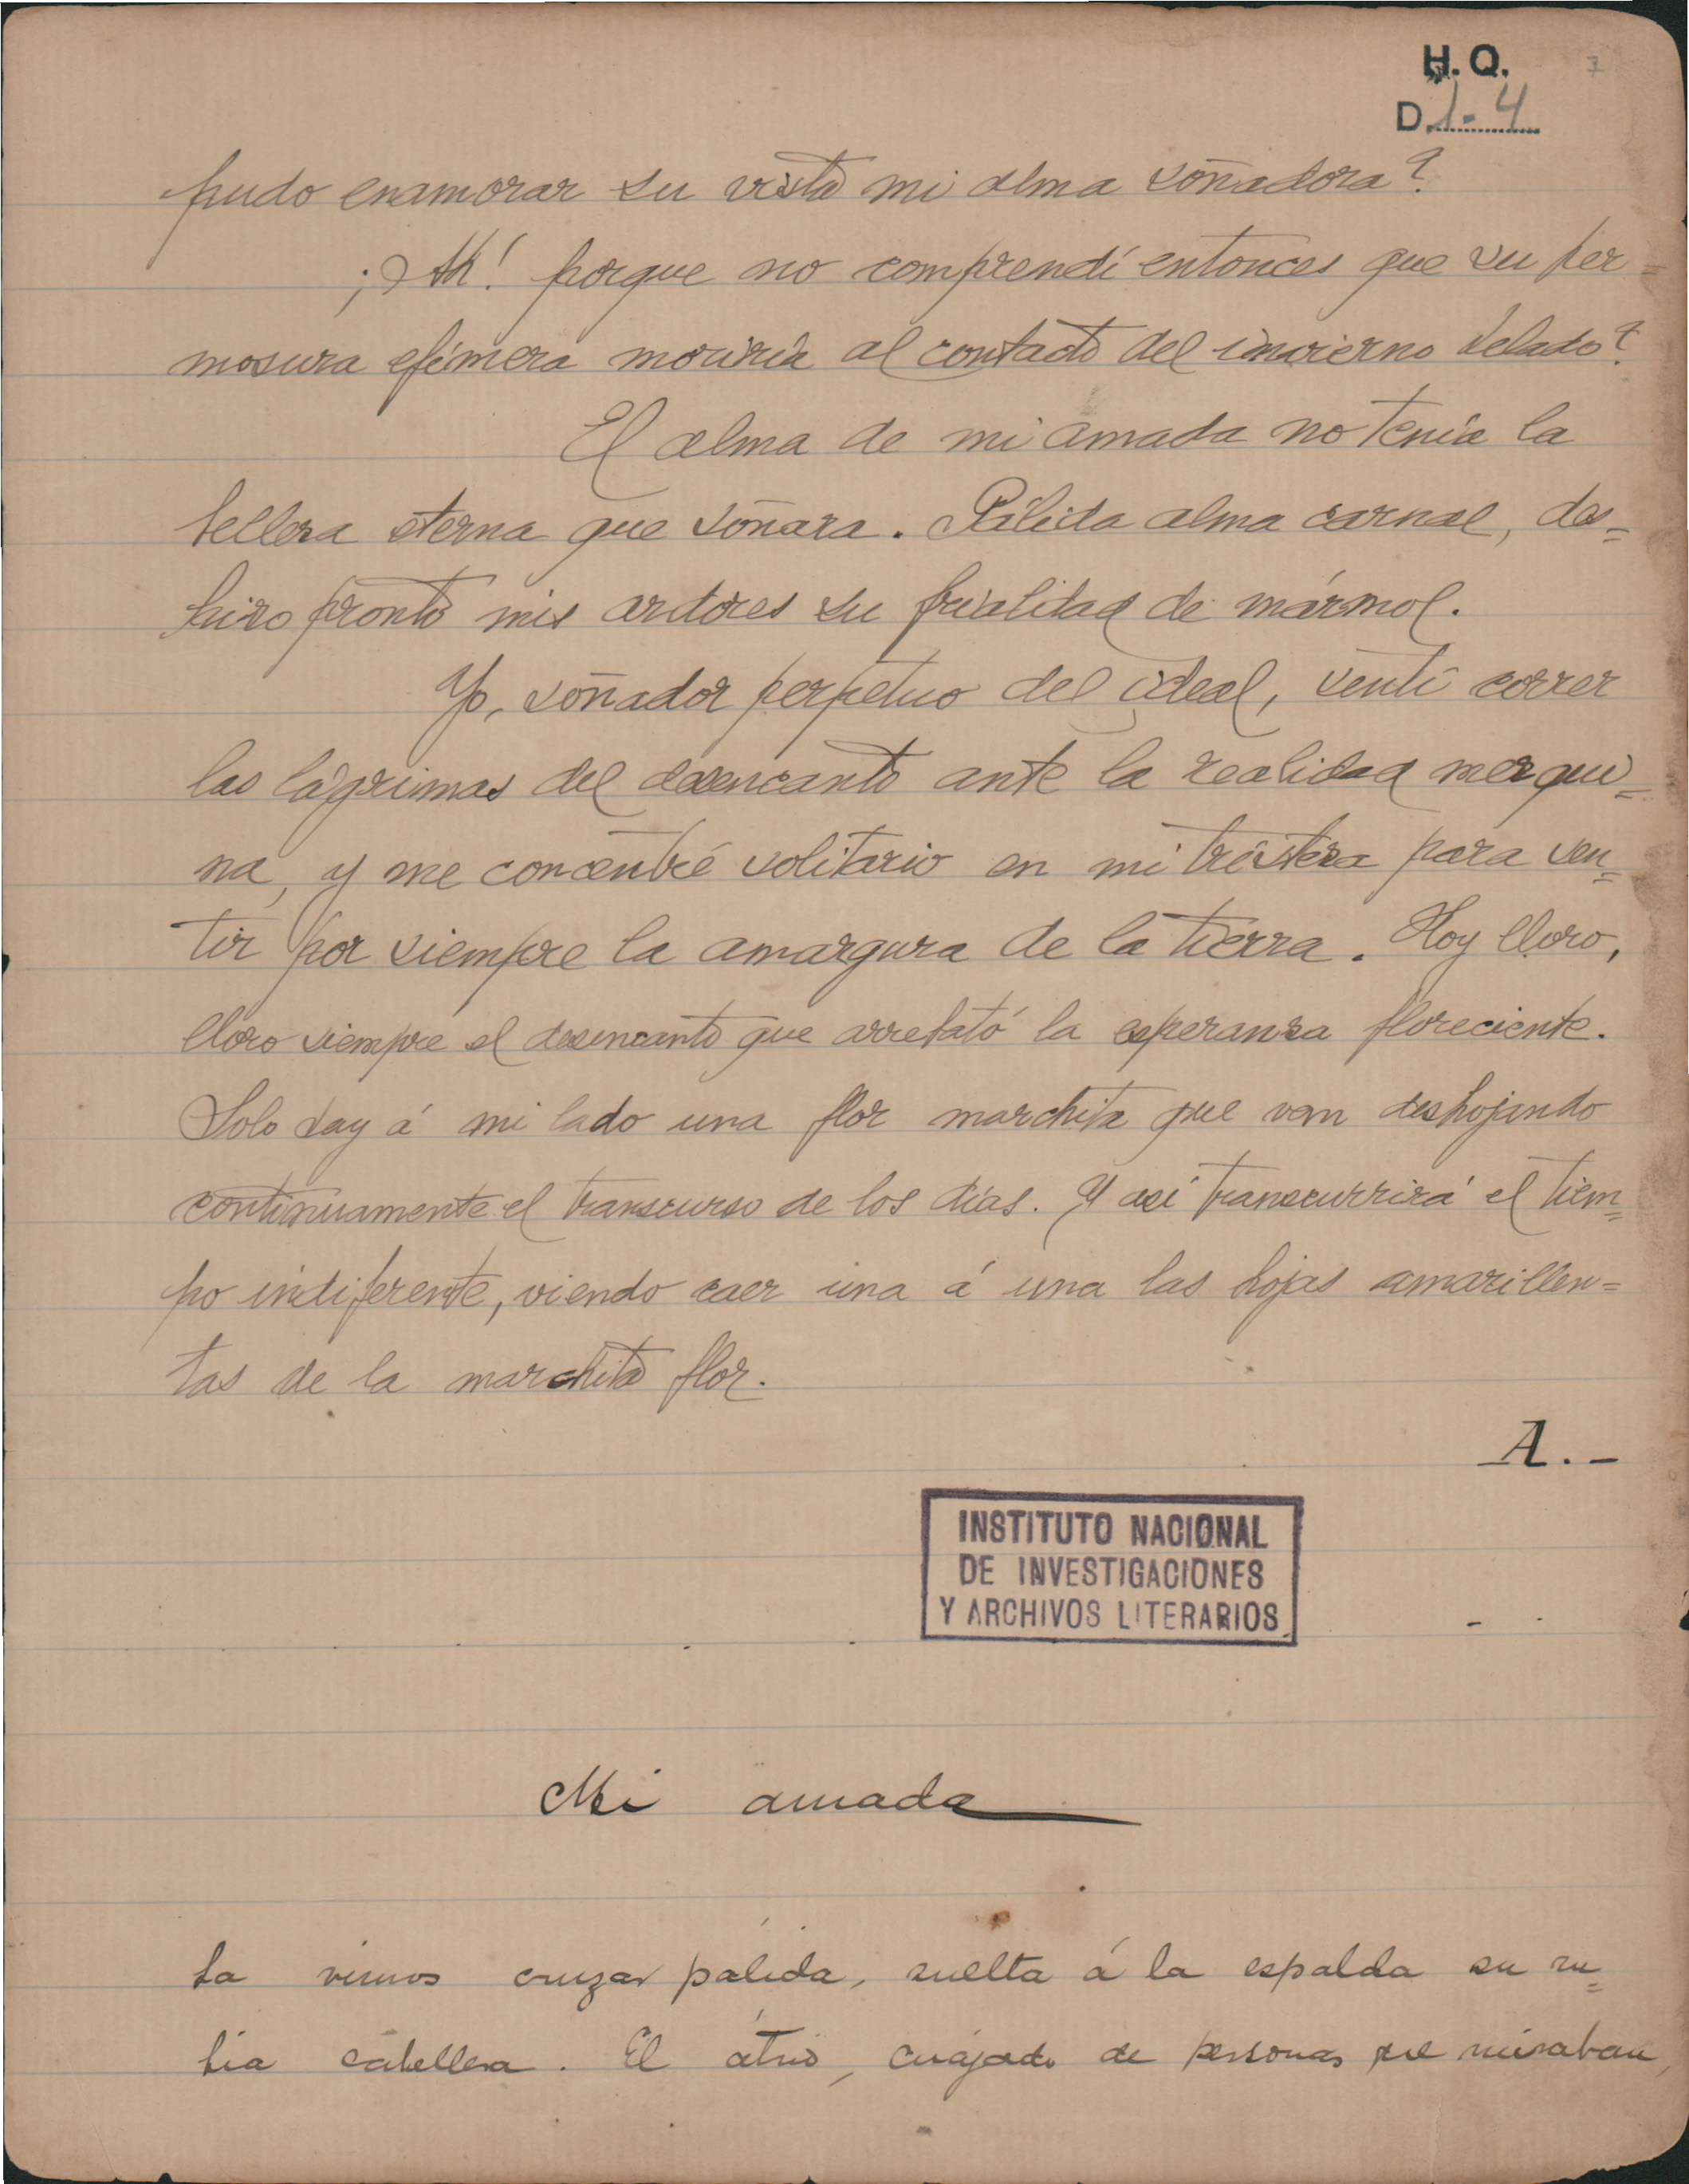 H. Q. 7
D. 1-4
pudo enamorar su vista mi alma soñadora?
¡Ah! porque no comprendí entonces que su her=
mosura efímera moriría al contacto del invierno helado?
El alma de mi amada no tenía la
belleza eterna que soñara. Pálida alma carnal, des=
hizo pronto mis ardores su frialdad de mármol.
Yo, soñador perpetuo del ideal, sentí correr
las lágrimas del desencanto ante la realidad mezqui=
na, y me concentré solitario en mi tristeza para sen=
tir por siempre la amargura de la tierra. Hoy lloro,
lloro siempre el desencanto que arrebató la esperanza floreciente.
Solo hay á mi lado una flor marchita que van deshojando
continuamente el transcurso de los días. Y así transcurrirá el tiem=
po indiferente, viendo caer una á una las hojas amarillen=
tas de la marchita flor.
A.-
INSTITUTO NACIONAL
DE INVESTIGACIONES
Y ARCHIVOS LITERARIOS
Mi amada
La vimos cruzar pálida, suelta á la espalda su ru=
bia cabellera. El atrio, cuajado de personas que miraban,